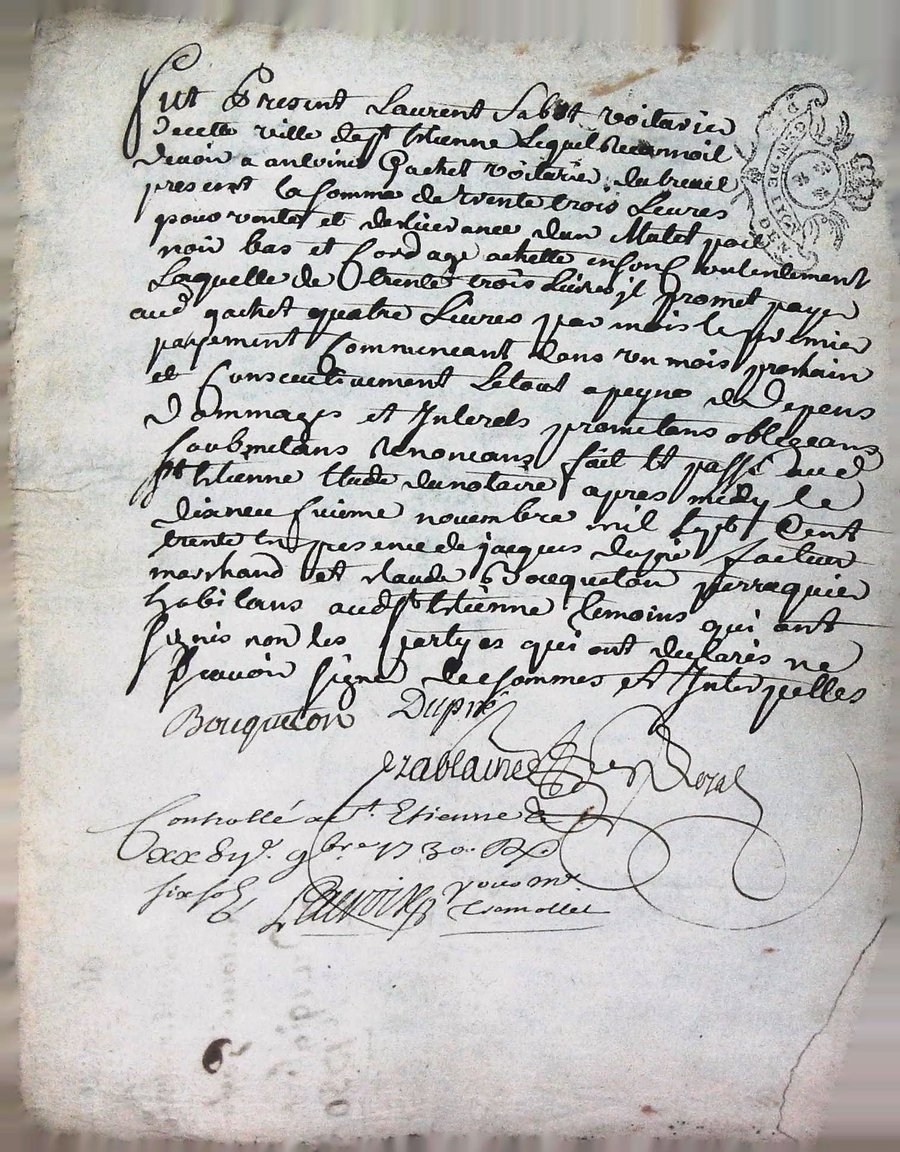 Fut Present Laurent Sabot voiturier
de cette ville de st Etienne Lequel Reconnoit
devoir a Gachet voiturier du breuil
present la somme de trente trois Livres
pour vente et deslivrance dun Mulet poil
noir bas et Cordage achetté
Laquelle de trente trois Livres il promet payer
aud gachet quatre Livres par mois le premier
payement Commencant dans un mois prochain
et Consecutivement Le tout a peyne de Depens
Dommages et Interets prometans obligeans
soubmetans Renoncans fait et passé aud
st Etienne Etude du notaire apres midy le
novembre mil sept Cent
trente En presence de jacques dupré facteur
marchand et claude Bouqueton perraquier
habitans aud st Etienne temoins qui ont
signés non les partyes qui ont declarés ne
scavoir signer de ce sommes et Interpelles
Bouqueton Dupré
ezablaine Royal
Controllé a st. Etienne
9bre 1730 R
six sols